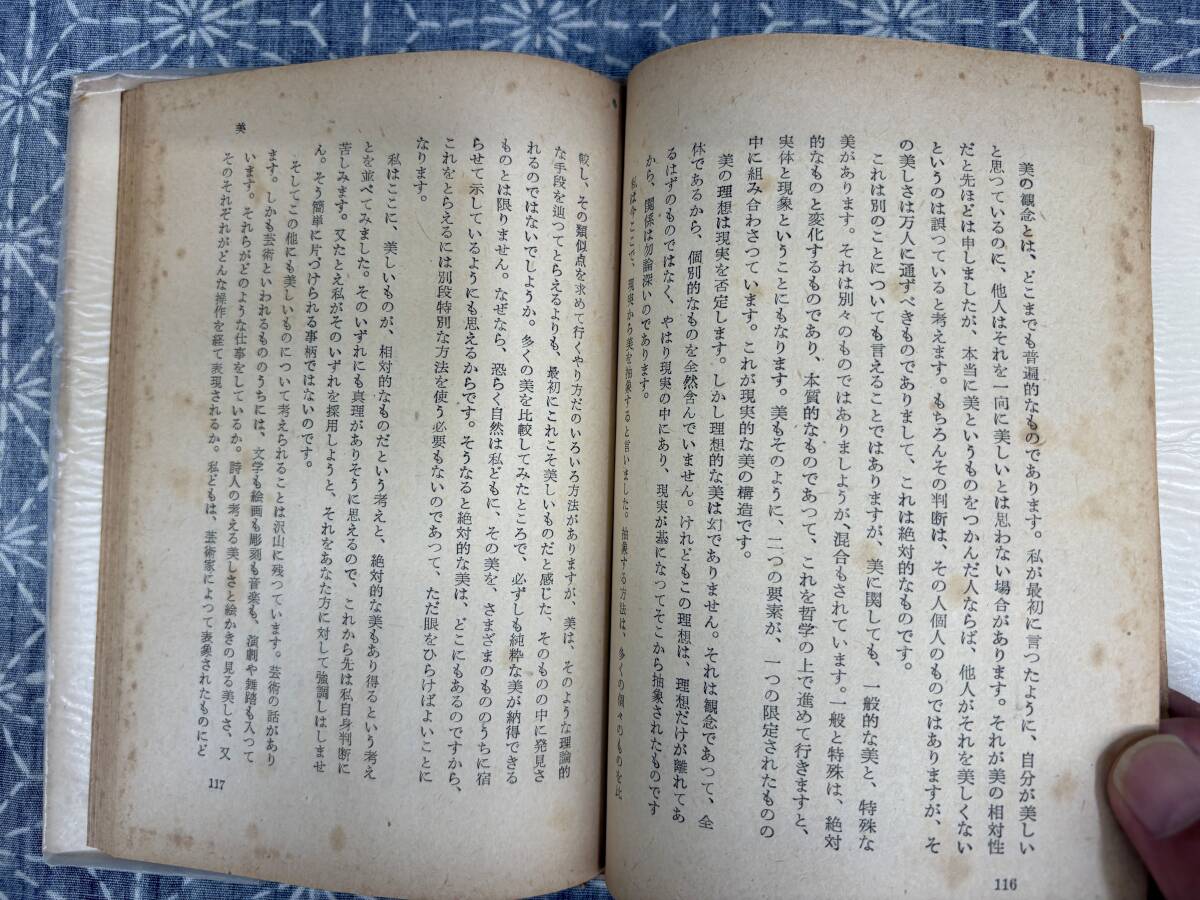 美の観念とは、どこまでも普遍的なものであります。私が最初に言つたように、自分が美しい
と思つているのに、他人はそれを一向に美しいとは思わない場合があります。それが美の相対性
だと先ほどは申しましたが、本当に美というものをつかんだ人ならば、他人がそれを美しくない
というのは誤つていると考えます。もちろんその判断は、その人個人のものではありますが、そ
の美しさは万人に通ずべきものでありまして、これは絶対的なものです。
これは別のことについても言えることではありますが、美に関しても、一般的な美と、特殊な
美があります。それは別々のものではありましようが、混合もされています。一般と特殊は、絶対
的なものと変化するものであり、本質的なものであつて、これを哲学の上で進めて行きますと、
実体と現象ということにもなります。美もそのように、二つの要素が、一つの限定されたものの
中に組み合わさつています。これが現実的な美の構造です。
美の理想は現実を否定します。しかし理想的な美は幻でありません。それは観念であつて、全
体であるから、個別的なものを全然含んでいません。けれどもこの理想は、理想だけが離れてあ
るはずのものではなく、やはり現実の中にあり、現実が基になつてそこから抽象されたものです
から、関係は勿論深いのであります。
私は今ここで、現実から美を抽象すると言いました。抽象する方法は、多くの個々のものを比
116
較し、その類似点を求めて行くやり方だのいろいろ方法がありますが、美は、そのような理論的
な手段を辿つてとらえるよりも、最初にこれこそ美しいものだと感じた、そのものの中に発見さ
れるのではないでしようか。多くの美を比較してみたところで、必ずしも純粋な美が納得できる
ものとは限りません。なぜなら、恐らく自然は私どもに、その美を、さまざまのもののうちに宿
らせて示しているようにも思えるからです。そうなると絶対的な美は、どこにもあるのですから、
これをとらえるには別段特別な方法を使う必要もないのであつて、ただ眼をひらけばよいことに
なります。
私はここに、美しいものが、相対的なものだという考えと、絶対的な美もあり得るという考え
とを並べてみました。そのいずれにも真理がありそうに思えるので、これから先は私自身判断に
苦しみます。又たとえ私がそのいずれを採用しようと、それをあなた方に対して強調しはしませ
ん。そう簡単に片づけられる事柄ではないのです。
そしてこの他にも美しいものについて考えられることは沢山に残つています。芸術の話があり
ます。しかも芸術といわれるもののうちには、文学も絵画も彫刻も音楽も、演劇や舞踏も入つて
います。それらがどのような仕事をしているか。詩人の考える美しさと絵かきの見る美しさ、又
そのそれぞれがどんな操作を経て表現されるか。私どもは、芸術家によつて表象されたものにど
美
117